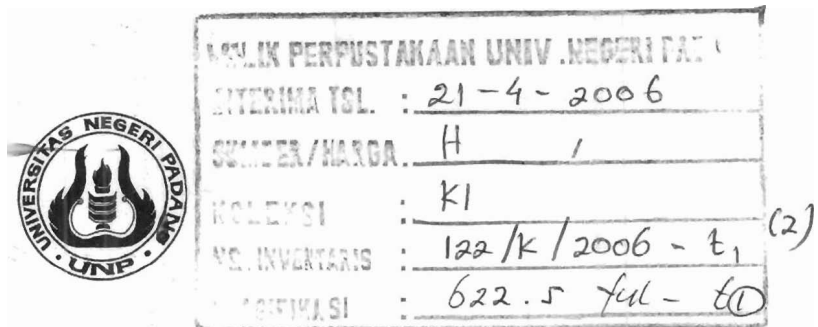 UNIVERSITAS NEGERI PADANG
UNP
MILIK PERPUSTAKAAN UNIV .NEGERI PA
DITERIMA TGL. : 21-4-2006
SUMBER/HARGA. H /
KOLEKSI : KI
NO. INVENTARIS : 122/K/2006 - t1 (2)
KLASIFIKASI : 622.5 ful - t①